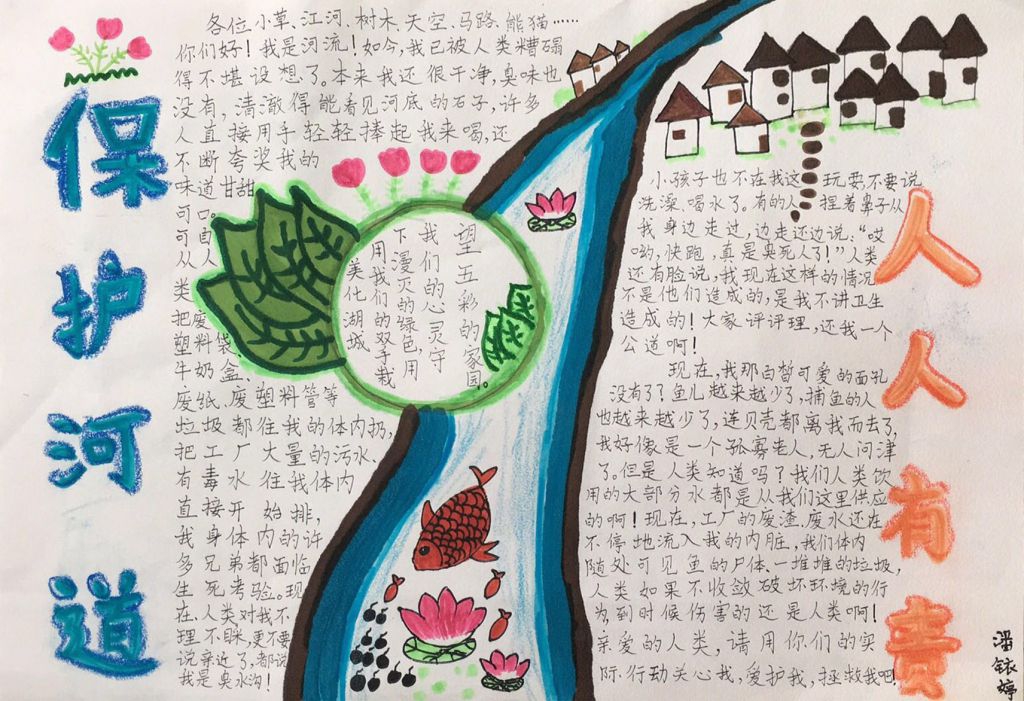 保护河道
各位小草、江河、树木、天空、马路、熊猫……
你们好！我是河流！如今,我已被人类糟蹋
得不堪设想了。本来我还很干净,臭味也
没有,清澈得能看见河底的石子,许多
人直接用手轻轻捧起我来喝,还
不断夸奖我的
味道甘甜
可口。
可自
从人
类
把废
塑料袋、
牛奶盒、
废纸、废塑料管等
垃圾都往我的体内扔,
把工厂大量的污水、
有毒水往我体内
直接开始排,
我身体内的许
多兄弟都面临
生死考验。现
在,人类对我不
理不睬,更不要
说亲近了,都说
我是臭水沟！
美化湖城
用我们的双手栽
下漫灭的绿色,用
我们的心灵守
望五彩的家园。
小孩子也不在我这玩耍,不要说
洗澡、喝水了。有的人捏着鼻子从
我身边走过,边走还边说:“哎
哟,快跑,真是臭死人了！”人类
还有脸说,我现在这样的情况
不是他们造成的,是我不讲卫生
造成的！大家评评理,还我一个
公道啊！
现在,我那白皙可爱的面孔
没有了？鱼儿越来越少了,捕鱼的人
也越来越少了,连贝壳都离我而去了,
我好像是一个孤寡老人,无人问津
了。但是人类知道吗？我们人类饮
用的大部分水都是从我们这里供应
的啊！现在,工厂的废渣、废水还在
不停地流入我的内脏,我们体内
随处可见鱼的尸体、一堆堆的垃圾,
人类如果不收敛破坏环境的行
为,到时候伤害的还是人类啊！
亲爱的人类,请用你们的实
际行动关心我,爱护我,拯救我吧！
人人有责
潘铱婷